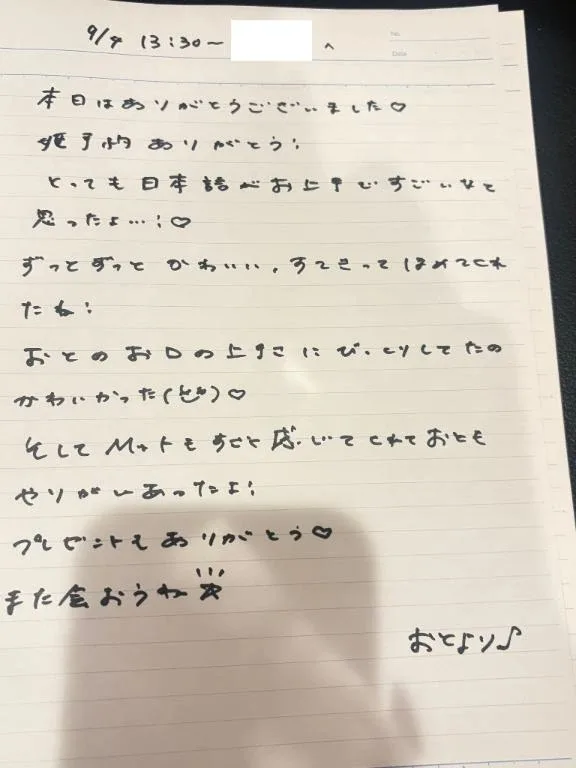 9/4 13:30〜 へ
No.
Date
本日はありがとうございました♡
姫予約ありがとう!
とっても日本語がお上手ですごいなと
思ったよ…!♡
ずっとずっとかわいい、すてきってほめてくれ
たね!
おとのお口の上手さにびっくりしてたの
かわいかった( )♡
そしてMットもすごく感じてくれておとも
やりがいあったよ!
プレゼントもありがとう♡
また会おうね☆
おとより♪